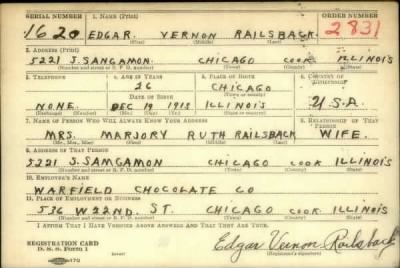 SERIAL NUMBER 1. NAME (Print) ORDER NUMBER
1620 EDGAR. VERNON RAILSBACK 2831
(First) (Middle) (Last)
2. ADDRESS (Print)
5221 S. SANGAMON. CHICAGO COOK ILLINOIS
(Number and street or R. F. D. number) (Town) (County) (State)
3. TELEPHONE 4. AGE IN YEARS 5. PLACE OF BIRTH 6. COUNTRY OF CITIZENSHIP
26 CHICAGO
DATE OF BIRTH
NONE. DEC 19 1913 ILLINOIS U.S.A.
(Exchange) (Number) (Mo.) (Day) (Yr.) (State or country)
7. NAME OF PERSON WHO WILL ALWAYS KNOW YOUR ADDRESS 8. RELATIONSHIP OF THAT PERSON
MRS. MARJORY RUTH RAILSBACK WIFE.
(Mr., Mrs., Miss) (First) (Middle) (Last)
9. ADDRESS OF THAT PERSON
5221 S. SAMGAMON CHICAGO COOK ILLINOIS
(Number and street or R. F. D. number) (Town) (County) (State)
10. EMPLOYER'S NAME
WARFIELD CHOCOLATE CO
11. PLACE OF EMPLOYMENT OR BUSINESS
536 W 22ND. ST. CHICAGO COOK ILLINOIS
(Number and street or R. F. D. number) (Town) (County) (State)
I AFFIRM THAT I HAVE VERIFIED ABOVE ANSWERS AND THAT THEY ARE TRUE.
REGISTRATION CARD
D. S. S. Form 1 Edgar Vernon Railsback
(Registrant's signature)